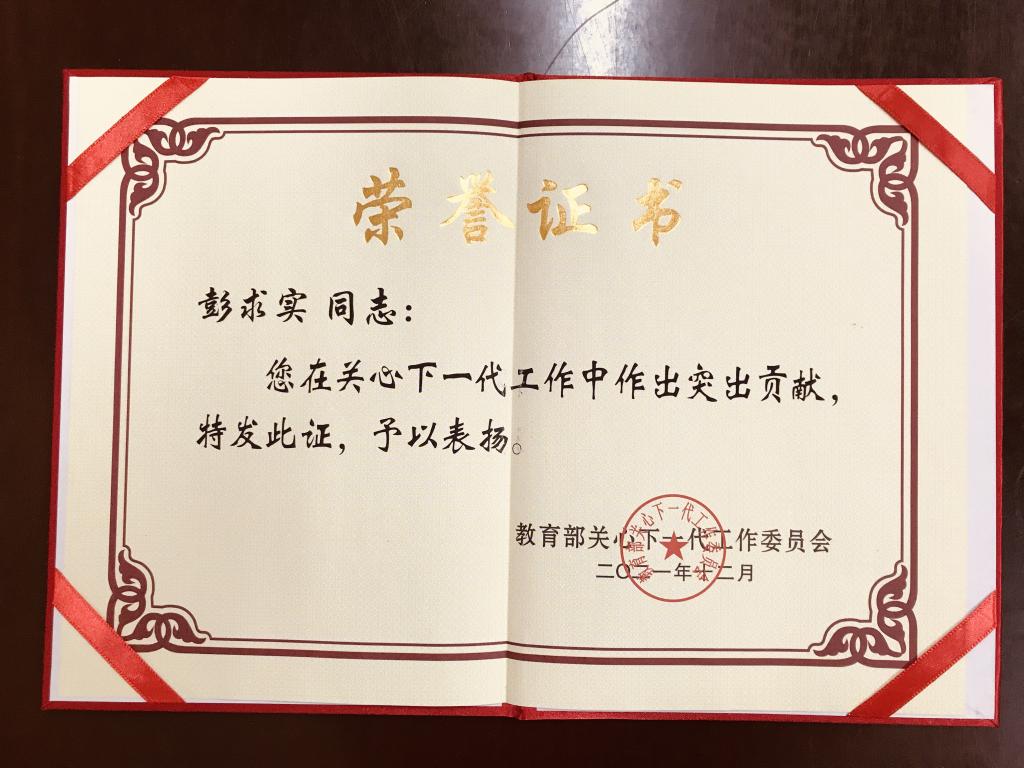 荣誉证书
彭求实 同志：
您在关心下一代工作中作出突出贡献，
特发此证，予以表扬。
教育部关心下一代工作委员会
二〇二一年十二月
教育部关心下一代工作委员会